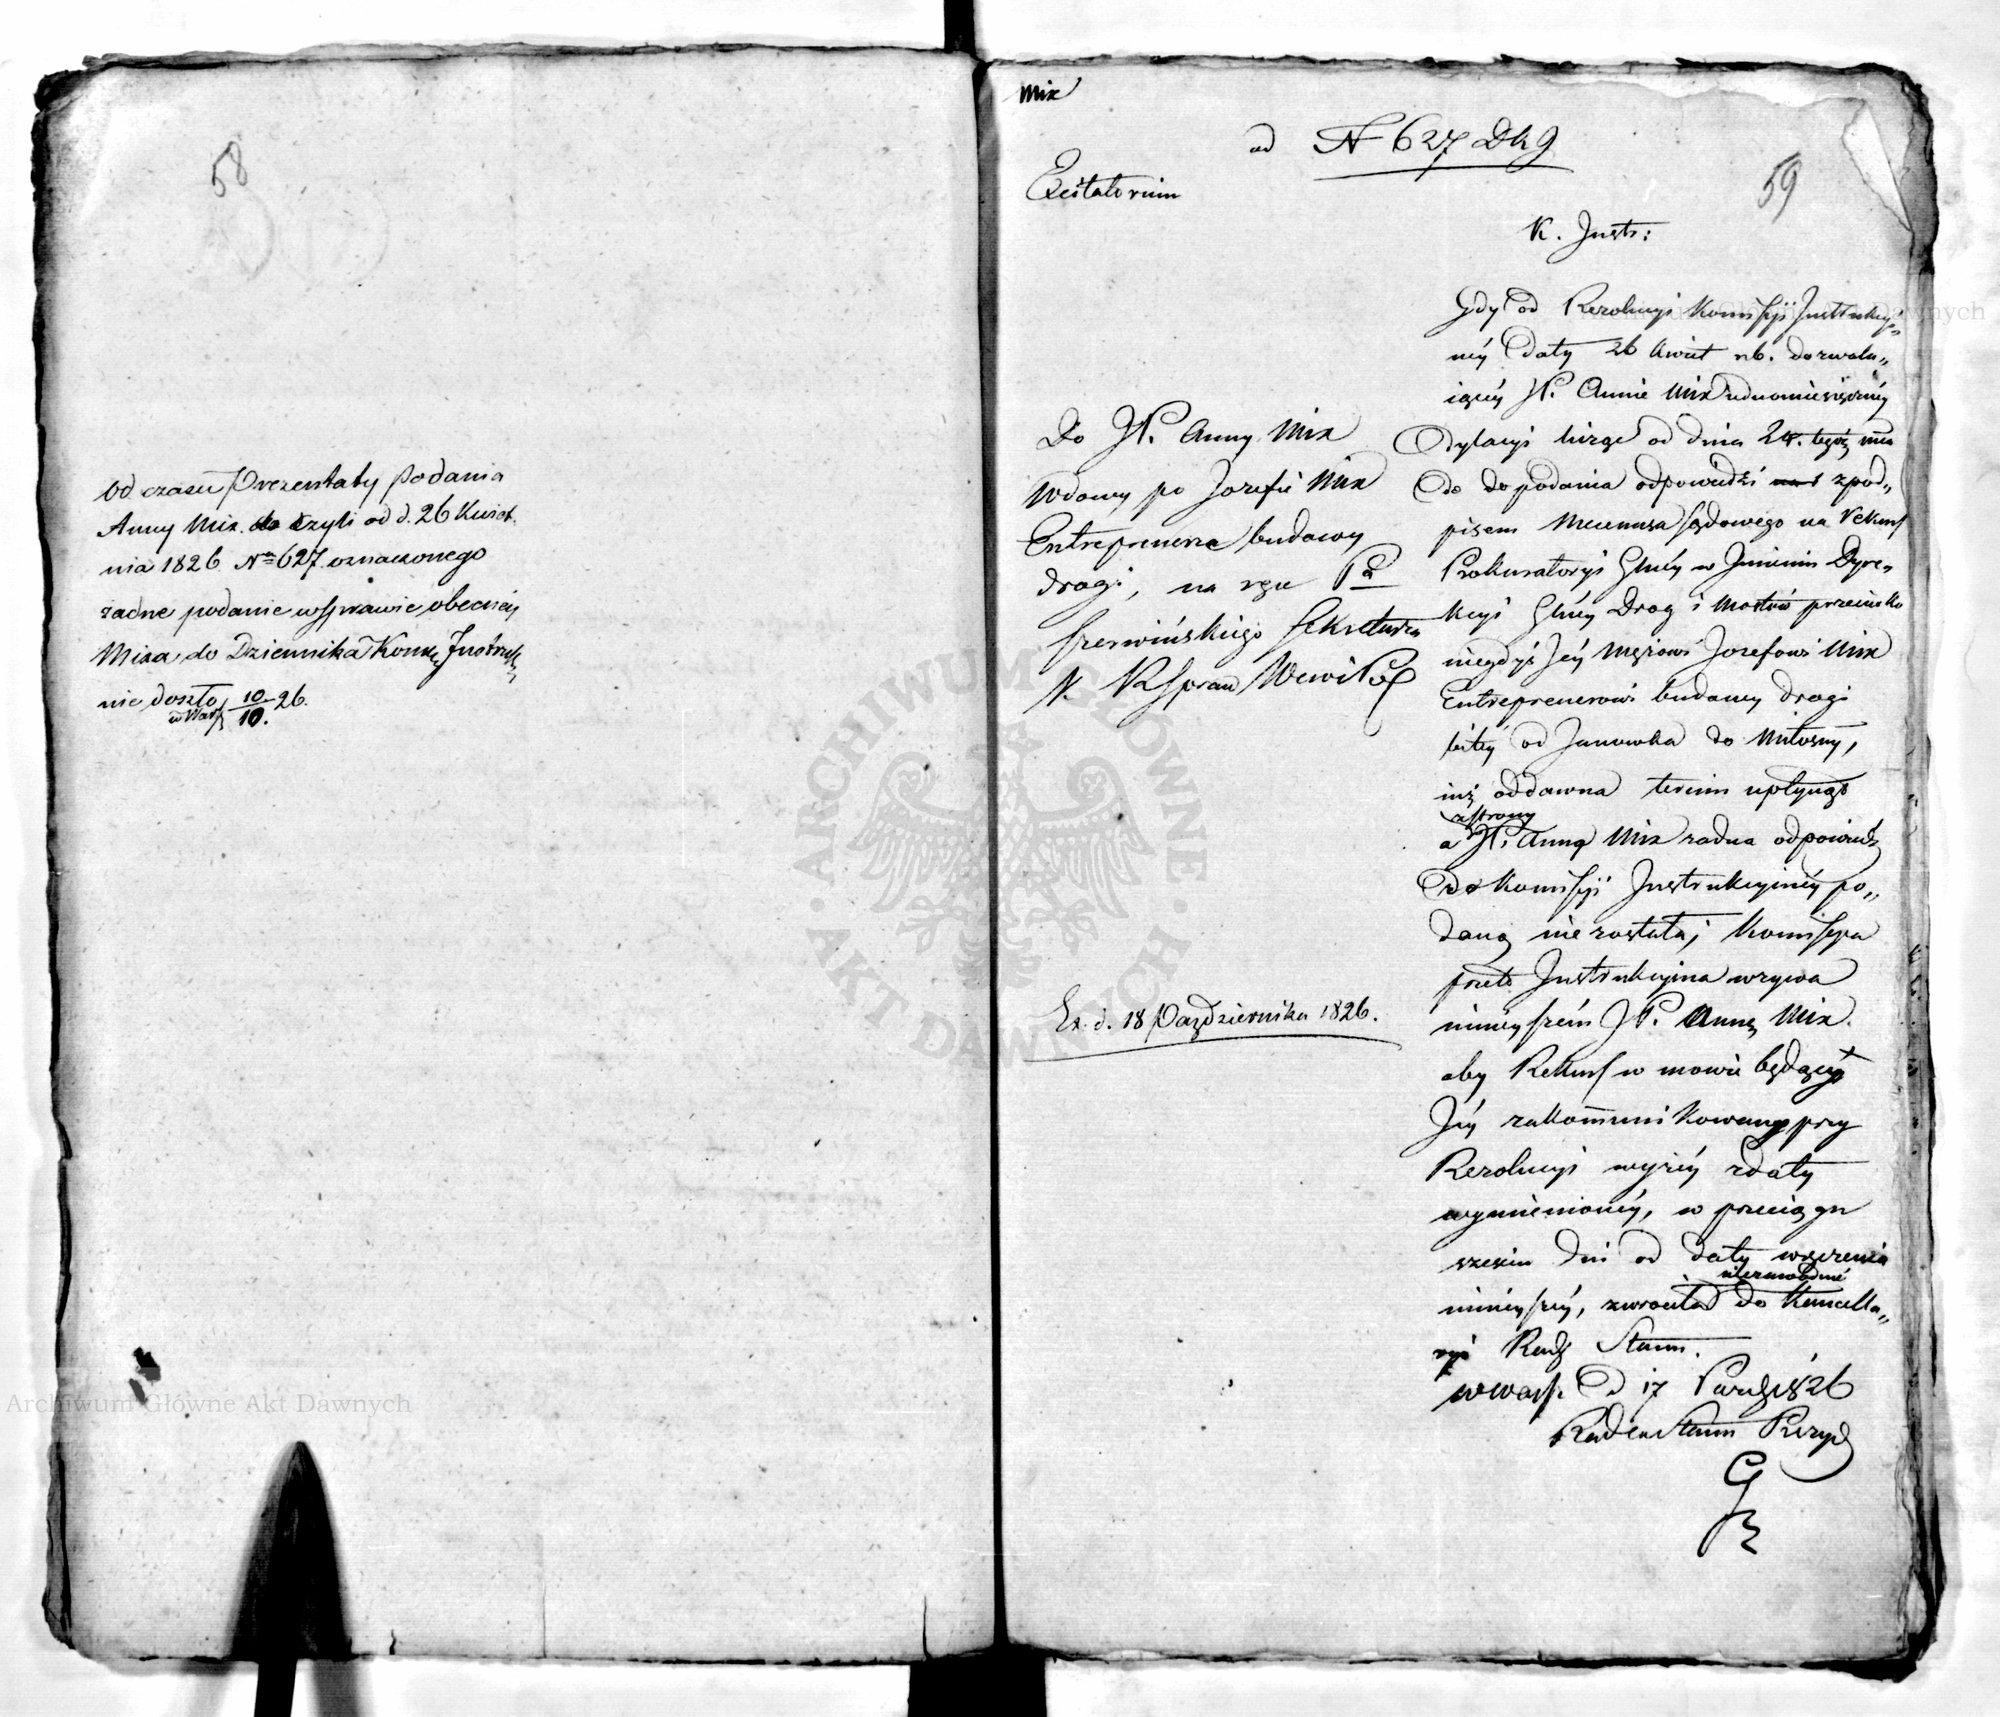 58
Od czasu Prezentaty Podania
Anny Mix. czyli od d. 26 Kwiet.
nia 1826 Nro 627. oznaczonego
żadne podanie w Sprawie obecnej
Mixa do Dziennika Komiss Instrukc
nie doszło 10/10 26.
w Warsz
Mix
ad N 627 Dk 9
59
Excitatorium
K. Instr:
Do JP. Anny Mix
Wdowy po Jozefie Mix
Entreprenerze budowy
drogi, na ręce Pa
Czerwińskiego Sekretarza
K. R. Spraw Wew i Pol
Ex. d. 18 Października 1826.
Gdy od Rezolucyi Komissyi Instrukcyi„
néy Daty 26 Kwiet rb. dozwala„
iącéy JP. Annie Mix dwumiesięcznéy
Dylacyi licząc od dnia 24. tegoż mca
do podania odpowiedzi z pod„
pisem Mecenasa sądowego na Rekurs
Prokuratoryi Głnéy w Jmieniu Dyre„
kcyi Głnéy Drog i Mostów przeciwko
niegdyś Jéy Mężowi Jozefowi Mix
Entreprenerowi budowy drogi
bitéy od Janowka do Miłosny,
iuż oddawna termin upłynął
z strony
a JP. Anny Mix żadna odpowiedź
do Komissyi Instrukcyinéy po„
daną nie została; Komissya
przeto Instrukcyina wzywa
ninieyszém JP. Annę Mix.
aby Rekurs w mowie będący
Jéy zakommunikowany przy
Rezolucyi wyżéy z daty
wymienionéy, w przeciągu
sześciu dni od daty wręczenia
niezawodnie
ninieyszéy, zwróciła do Kancella„
ryi Rady Stanu.
w Warsz. D 17 Pazdz 826
Radca Stanu Prezyd